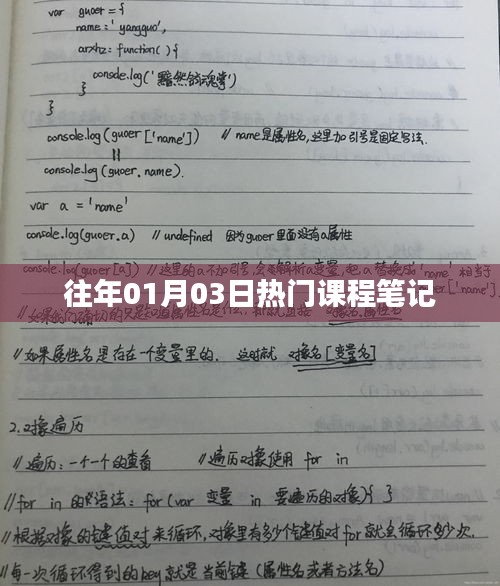 var guoer = {
name: 'yangguo',
arxhz: function( ) {
console.log('黯然销魂掌')
}
}
console.log (guoer ['name']) // name是属性名,这里加引号是固定写法.
||
console.log (guoer. name).
var a = 'name'
console.log(guoer.a) // undefined 因为guoer里面没有a属性
console.log(guoer[a]) // 这里的a不加引号,会去解析a变量,把a替换成'name' 相当于
往年01月03日热门课程笔记
//如果属性名是存在一个变量里的. 这时就 对象名[变量名]
2.对象遍历
// 遍历: 一个一个的查看 // 遍历对象使用 for in
//for in 的语法: for (var 变量 in 要遍历的对象) { }
//根据对象的键值对来循环,对象里有多少个键值对 for 就会循环多少次.
//每一次循环得到的key就是当前键 (属性名或者方法名)